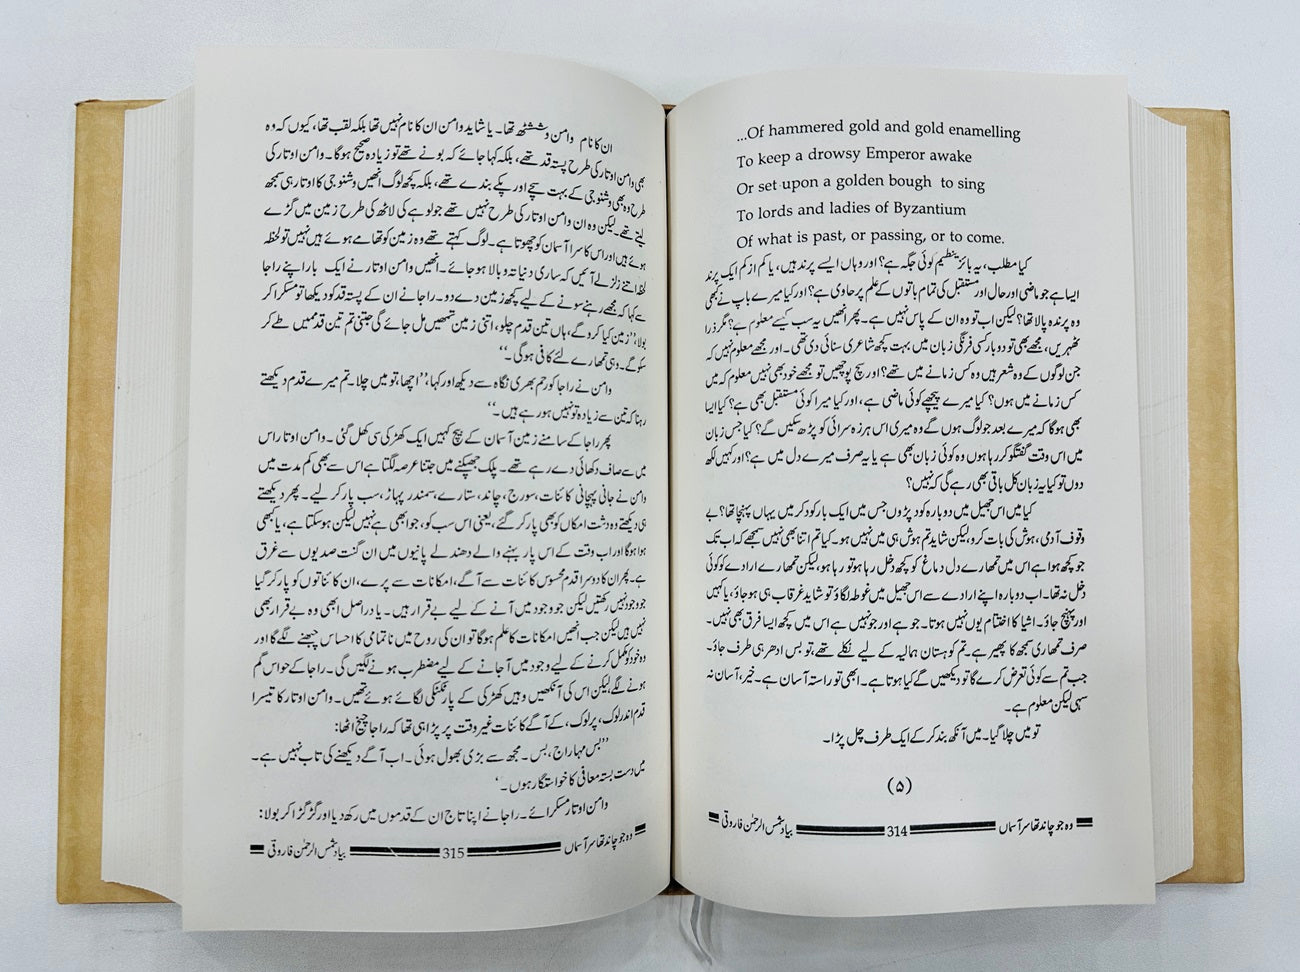 ...Of hammered gold and gold enamelling
To keep a drowsy Emperor awake
Or set upon a golden bough to sing
To lords and ladies of Byzantium
Of what is past, or passing, or to come.
کیا مطلب، یہ بائزینطیم کوئی جگہ ہے؟ اور وہاں ایسے پرند ہیں، یا کم از کم ایک پرند
ایسا ہے جو ماضی اور حال اور مستقبل کی تمام باتوں کے علم پر حاوی ہے؟ اور کیا میرے باپ نے کبھی
وہ پرندہ پالا تھا؟ لیکن اب تو وہ ان کے پاس نہیں ہے۔ پھر انھیں یہ سب کیسے معلوم ہے؟ مگر ذرا
ٹھہریں، مجھے بھی تو دو بار کسی فرنگی زبان میں بہت کچھ شاعری سنائی دی تھی۔ اور مجھے معلوم نہیں کہ
جن لوگوں کے وہ شعر ہیں وہ کس زمانے میں تھے؟ اور سچ پوچھیں تو مجھے خود بھی نہیں معلوم کہ میں
کس زمانے میں ہوں؟ کیا میرے پیچھے کوئی ماضی ہے، اور کیا میرا کوئی مستقبل بھی ہے؟ کیا ایسا
بھی ہوگا کہ میرے بعد جو لوگ ہوں گے وہ میری اس ہرزہ سرائی کو پڑھ سکیں گے؟ کیا جس زبان
میں اس وقت گفتگو کر رہا ہوں وہ کوئی زبان بھی ہے یا یہ صرف میرے دل میں ہے؟ اور کہیں لکھ
دوں تو کیا یہ زبان کل باقی بھی رہے گی کہ نہیں؟
کیا میں اس جھیل میں دوبارہ کود پڑوں جس میں ایک بار کود کر میں یہاں پہنچا تھا؟ بے
وقوف آدمی، ہوش کی بات کرو، لیکن شاید تم ہوش ہی میں نہیں ہو۔ کیا تم اتنا بھی نہیں سمجھے کہ اب تک
جو کچھ ہوا ہے اس میں تمھارے دل دماغ کو کچھ دخل رہا ہو تو رہا ہو، لیکن تمھارے ارادے کو کوئی
دخل نہ تھا۔ اب دوبارہ اپنے ارادے سے اس جھیل میں غوطہ لگاؤ تو شاید غرقاب ہی ہو جاؤ، یا کہیں
اور پہنچ جاؤ۔ اشیا کا اختتام یوں نہیں ہوتا۔ جو ہے اور جو نہیں ہے اس میں کچھ ایسا فرق بھی نہیں۔
صرف تمھاری سمجھ کا پھیر ہے۔ تم کوہستان ہمالیہ کے لیے نکلے تھے، تو بس ادھر ہی طرف جاؤ۔
جب تم سے کوئی تعرض کرے گا تو دیکھیں گے کیا ہوتا ہے۔ ابھی تو راستہ آسان ہے۔ خیر، آسان نہ
سہی لیکن معلوم ہے۔
تو میں چلا گیا۔ میں آنکھ بند کر کے ایک طرف چل پڑا۔
(۵)
وہ جو چاند تھا سر آسماں 314 بیاد شمس الرحمٰن فاروقی
ان کا نام وامن وششٹھ تھا۔ یا شاید وامن ان کا نام نہیں تھا بلکہ لقب تھا، کیوں کہ وہ
بھی وامن اوتار کی طرح پستہ قد تھے، بلکہ کہا جائے کہ بونے تھے تو زیادہ صحیح ہوگا۔ وامن اوتار کی
طرح وہ بھی وشنو جی کے بہت سچے اور پکے بندے تھے، بلکہ کچھ لوگ انھیں وشنو جی کا اوتار ہی سمجھ
لیتے تھے۔ لیکن وہ ان وامن اوتار کی طرح نہیں تھے جو لوہے کی لاٹھ کی طرح زمین میں گڑے
ہوئے ہیں اور اس کا سرا آسمان کو چھوتا ہے۔ لوگ کہتے تھے وہ زمین کو تھامے ہوئے ہیں نہیں تو لحظہ
لحظہ اتنے زلزلے آئیں کہ ساری دنیا تہ و بالا ہو جائے۔ انھیں وامن اوتار نے ایک بار اپنے راجا
سے کہا کہ مجھے رہنے سونے کے لیے کچھ زمین دے دو۔ راجا نے ان کے پستہ قد کو دیکھا تو مسکرا کر
بولا، ”زمین کیا کرو گے، ہاں تین قدم چلو، اتنی زمین تمھیں مل جائے گی جتنی تم تین قدموں میں طے کر
سکو گے۔ وہی تمھارے لئے کافی ہوگی۔“
وامن نے راجا کو رحم بھری نگاہ سے دیکھا اور کہا، ”اچھا، تو میں چلا۔ تم میرے قدم دیکھتے
رہنا کہ تین سے زیادہ تو نہیں ہو رہے ہیں۔“
پھر راجا کے سامنے زمین آسمان کے بیچ کہیں ایک کھڑکی سی کھل گئی۔ وامن اوتار اس
میں سے صاف دکھائی دے رہے تھے۔ پلک جھپکنے میں جتنا عرصہ لگتا ہے اس سے بھی کم مدت میں
وامن نے جانی پہچانی کائنات، سورج، چاند، ستارے، سمندر پہاڑ، سب پار کر لیے۔ پھر دیکھتے
ہی دیکھتے وہ دشت امکاں کو بھی پار کر گئے، یعنی اس سب کو، جو ابھی ہے نہیں لیکن ہو سکتا ہے، یا کبھی
ہوا ہوگا اور اب وقت کے اس پار بہنے والے دھندلے پانیوں میں ان گنت صدیوں سے غرق
ہے۔ پھر ان کا دوسرا قدم محسوس کائنات سے آگے، امکانات سے پرے، ان کائناتوں کو پار کر گیا
جو وجود نہیں رکھتیں لیکن جو وجود میں آنے کے لیے بے قرار ہیں۔ یا دراصل ابھی وہ بے قرار بھی
نہیں ہیں لیکن جب انھیں امکانات کا علم ہوگا تو ان کی روح میں نا تمامی کا احساس چبھنے لگے گا اور
وہ خود کو مکمل کرنے کے لیے وجود میں آ جانے کے لیے مضطرب ہونے لگیں گی۔ راجا کے حواس گم
ہونے لگے، لیکن اس کی آنکھیں وہیں کھڑکی کے پار ٹکٹکی لگائے ہوئے تھیں۔ وامن اوتار کا تیسرا
قدم اندر لوک، پرلوک، کے آگے کائنات غیر وقت پر پڑا ہی تھا کہ راجا چیخ اٹھا:
”بس مہاراج، بس۔ مجھ سے بڑی بھول ہوئی۔ اب آگے دیکھنے کی تاب نہیں ہے۔
میں دست بستہ معافی کا خواستگار ہوں۔‘
وامن اوتار مسکرائے۔ راجا نے اپنا تاج ان کے قدموں میں رکھ دیا اور گڑ گڑا کر بولا:
وہ جو چاند تھا سر آسماں 315 بیاد شمس الرحمٰن فاروقی